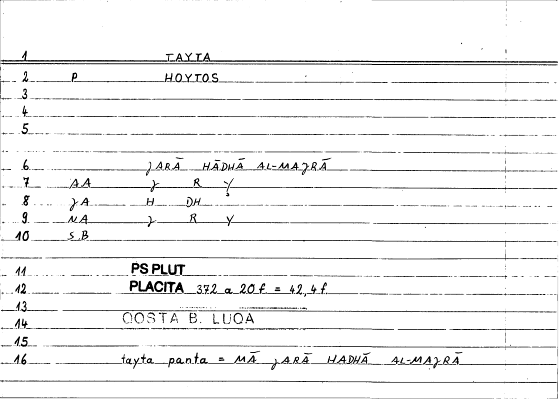 1 TAYTA
2 P HOYTOS
3
4
5
6 JARĀ HĀDHĀ AL-MAJRĀ
7 AA J R Y
8 JA H DH
9 NA J R Y
10 S.B
11 PS PLUT
12 PLACITA 372 a 20 f. = 42,4 f
13
14 QOSTA B. LUQA
15
16 tayta panta = MĀ JARĀ HADHĀ AL-MAJRĀ